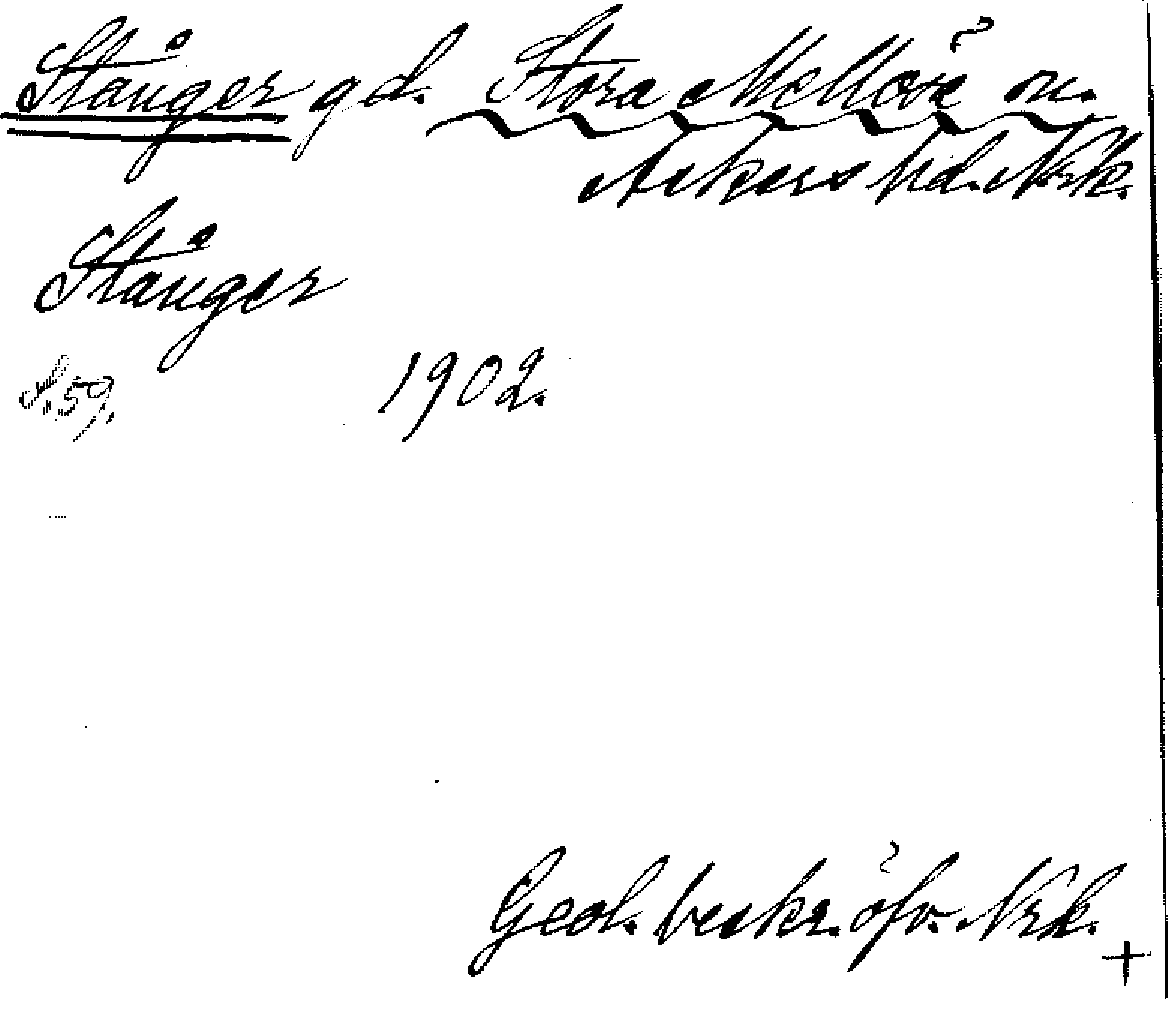 Stånger gd. Stora Mellösa sn.
Askers hd. Nrk.
Stånger
S. 59. 1902.
Geol. beskr. öfv. Nrk.
+